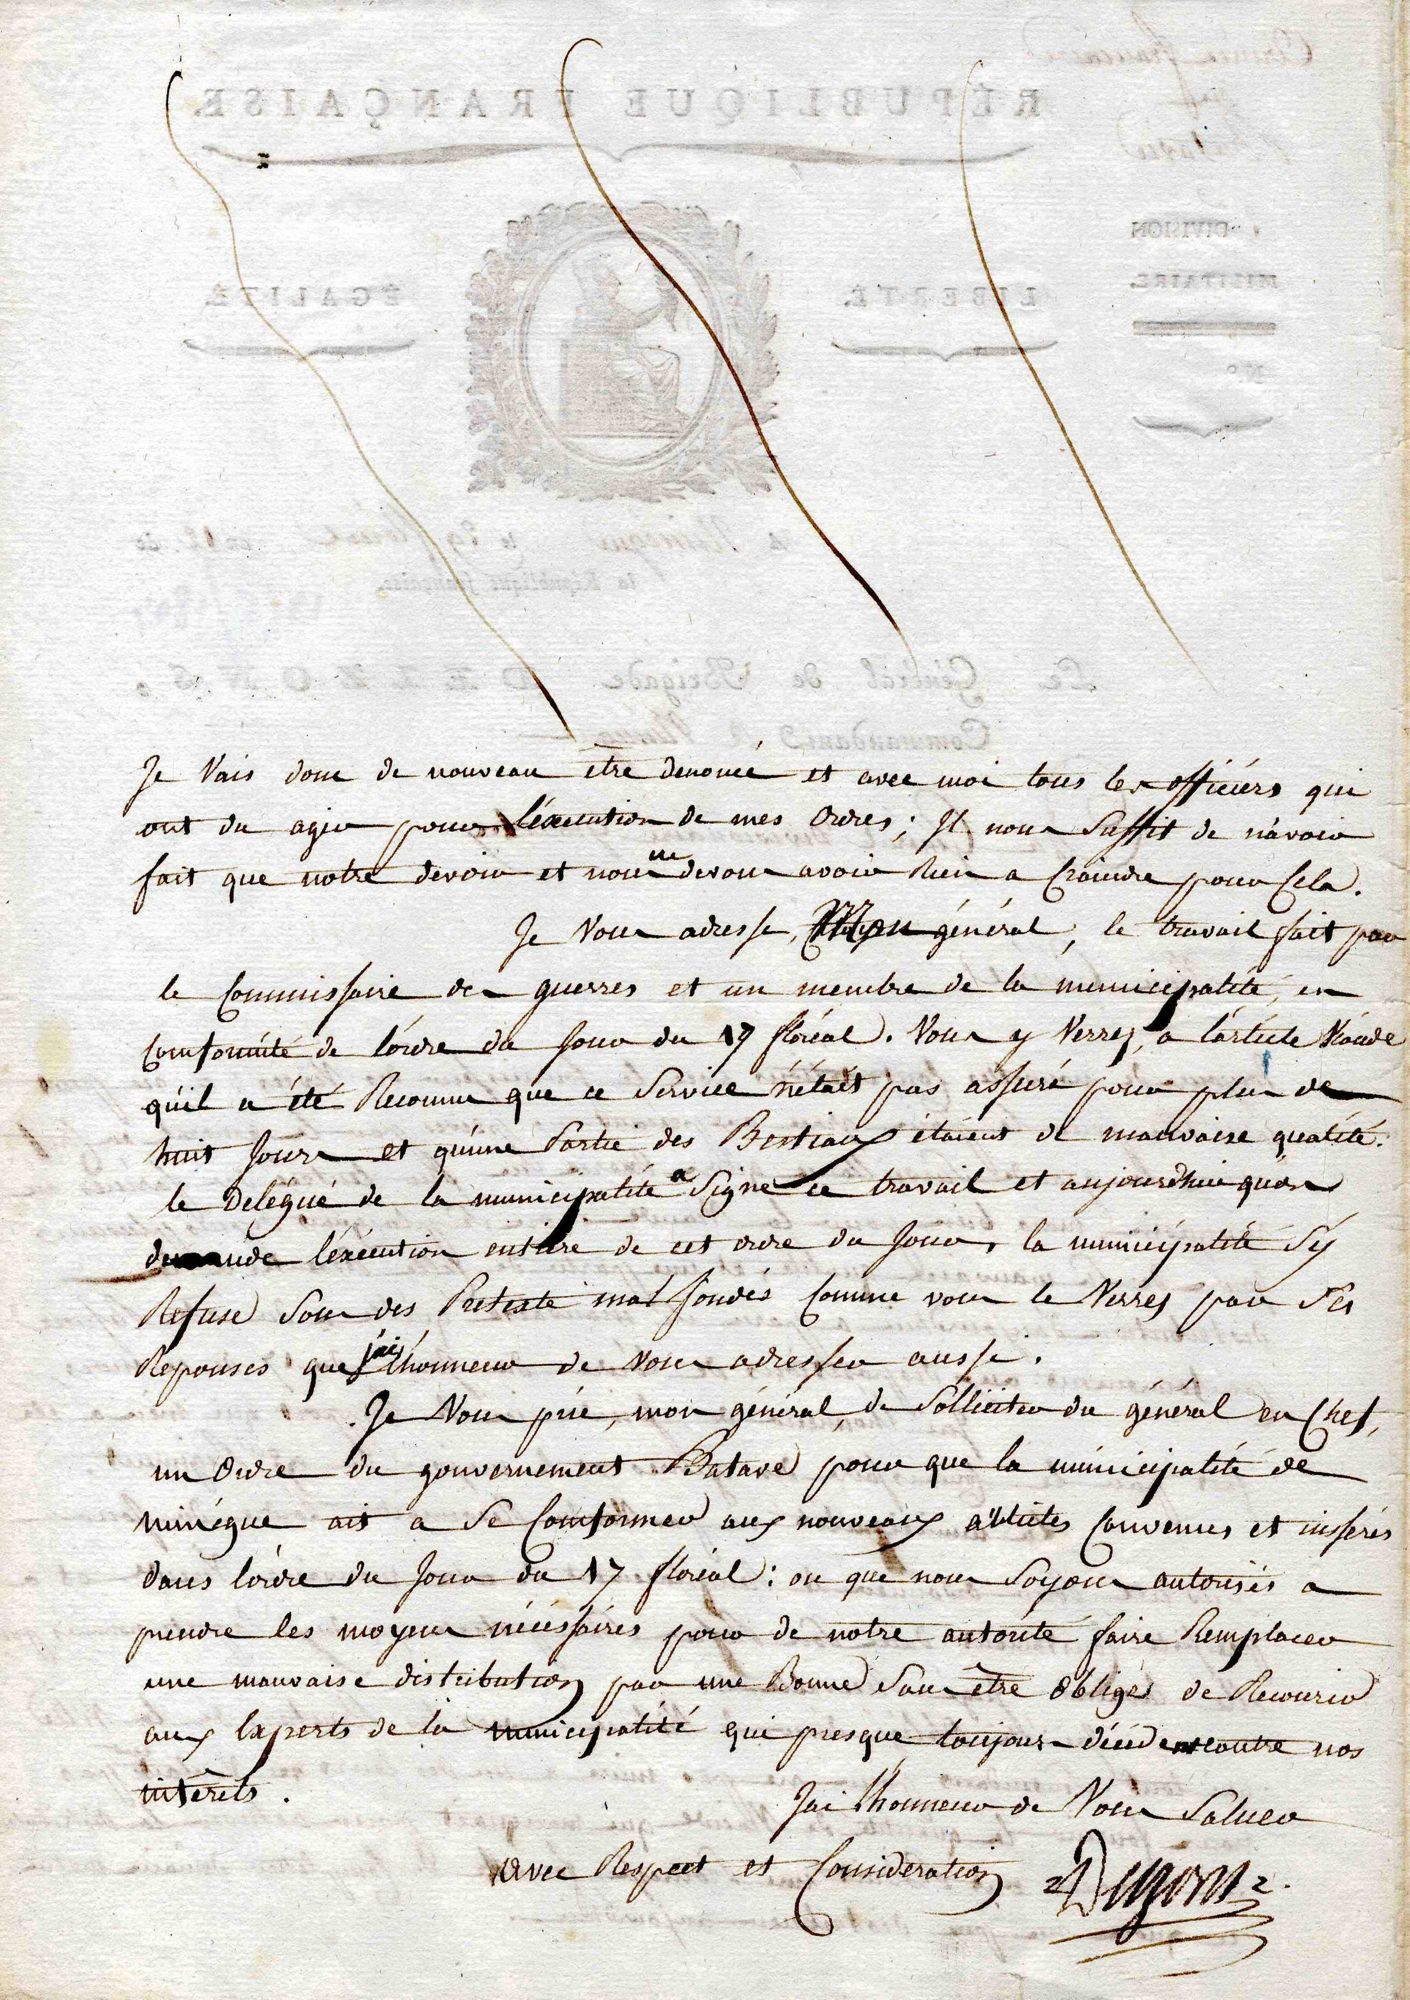 Je Vais donc de nouveau être denoncé et avec moi tous les officiers qui
ont du agir pour l'éxécution de mes Ordres ; Il nous Suffit de n'avoir
fait que notre devoir et nous ne devons avoir Rien a Craindre pour Cela.
Je Vous adresse, Mon général, le travail fait par
le Commissaire des guerres et un membre de la municipalité, en
Conformité de l'ordre du Jour du 17 floréal. Vous y Verrez, a l'article Viande
qu'il a été Reconnu que ce Service n'était pas assuré pour plus de
huit Jours et qu'une Partie des Bestiaux étaient de mauvaise qualité.
le Délégué de la municipalité a Signé ce travail et aujourdhui qu'on
demande l'éxécution entiere de cet ordre du Jour, la municipalité S'y
Refuse Sous des Pretexte mal fondés Comme vous le Verrés par Ses
Reponses que j'ai l'honneur de Vous adresser aussi.
Je Vous prie, mon général, de Solliciter du général en Chef,
un Ordre du gouvernement Batave pour que la municipalité de
nimégue ait a Se Conformer aux nouveaux articles Convenus et insérés
dans l'ordre du Jour du 17 floréal : ou que nous Soyons autorisés a
prendre les moyens nécéssaires pour de notre autorité faire Remplacer
une mauvaise distribution par une Bonne Sans être Obligé de Recourir
aux Experts de la municipalité qui presque toujours décident contre nos
intérêts.
J'ai l'honneur de Vous Saluer
avec Respect et Consideration
Delzons
RÉPUBLIQUE FRANÇAISE.
LIBERTÉ.
ÉGALITÉ.
DIVISION
MILITAIRE.
N.º
la République française.
Le Général de Brigade DELZONS.